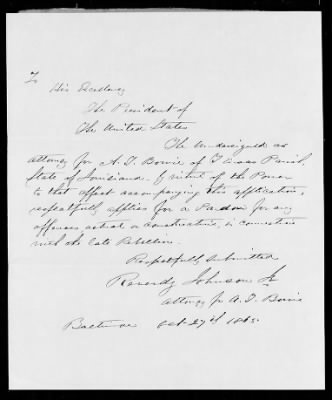 To
His Excellency
The President of
The United States
The Undersigned as
attorney for A. D. Bowie of Tensas Parish,
State of Louisiana. By virtue of the Power
to that effect accompanying this application,
respectfully applies for a Pardon for any
offences actual or constructive, in connection
with the late Rebellion.
Respectfully submitted
Reverdy Johnson Jr
attorney for A. D. Bowie
Baltimore Oct 27th 1865.